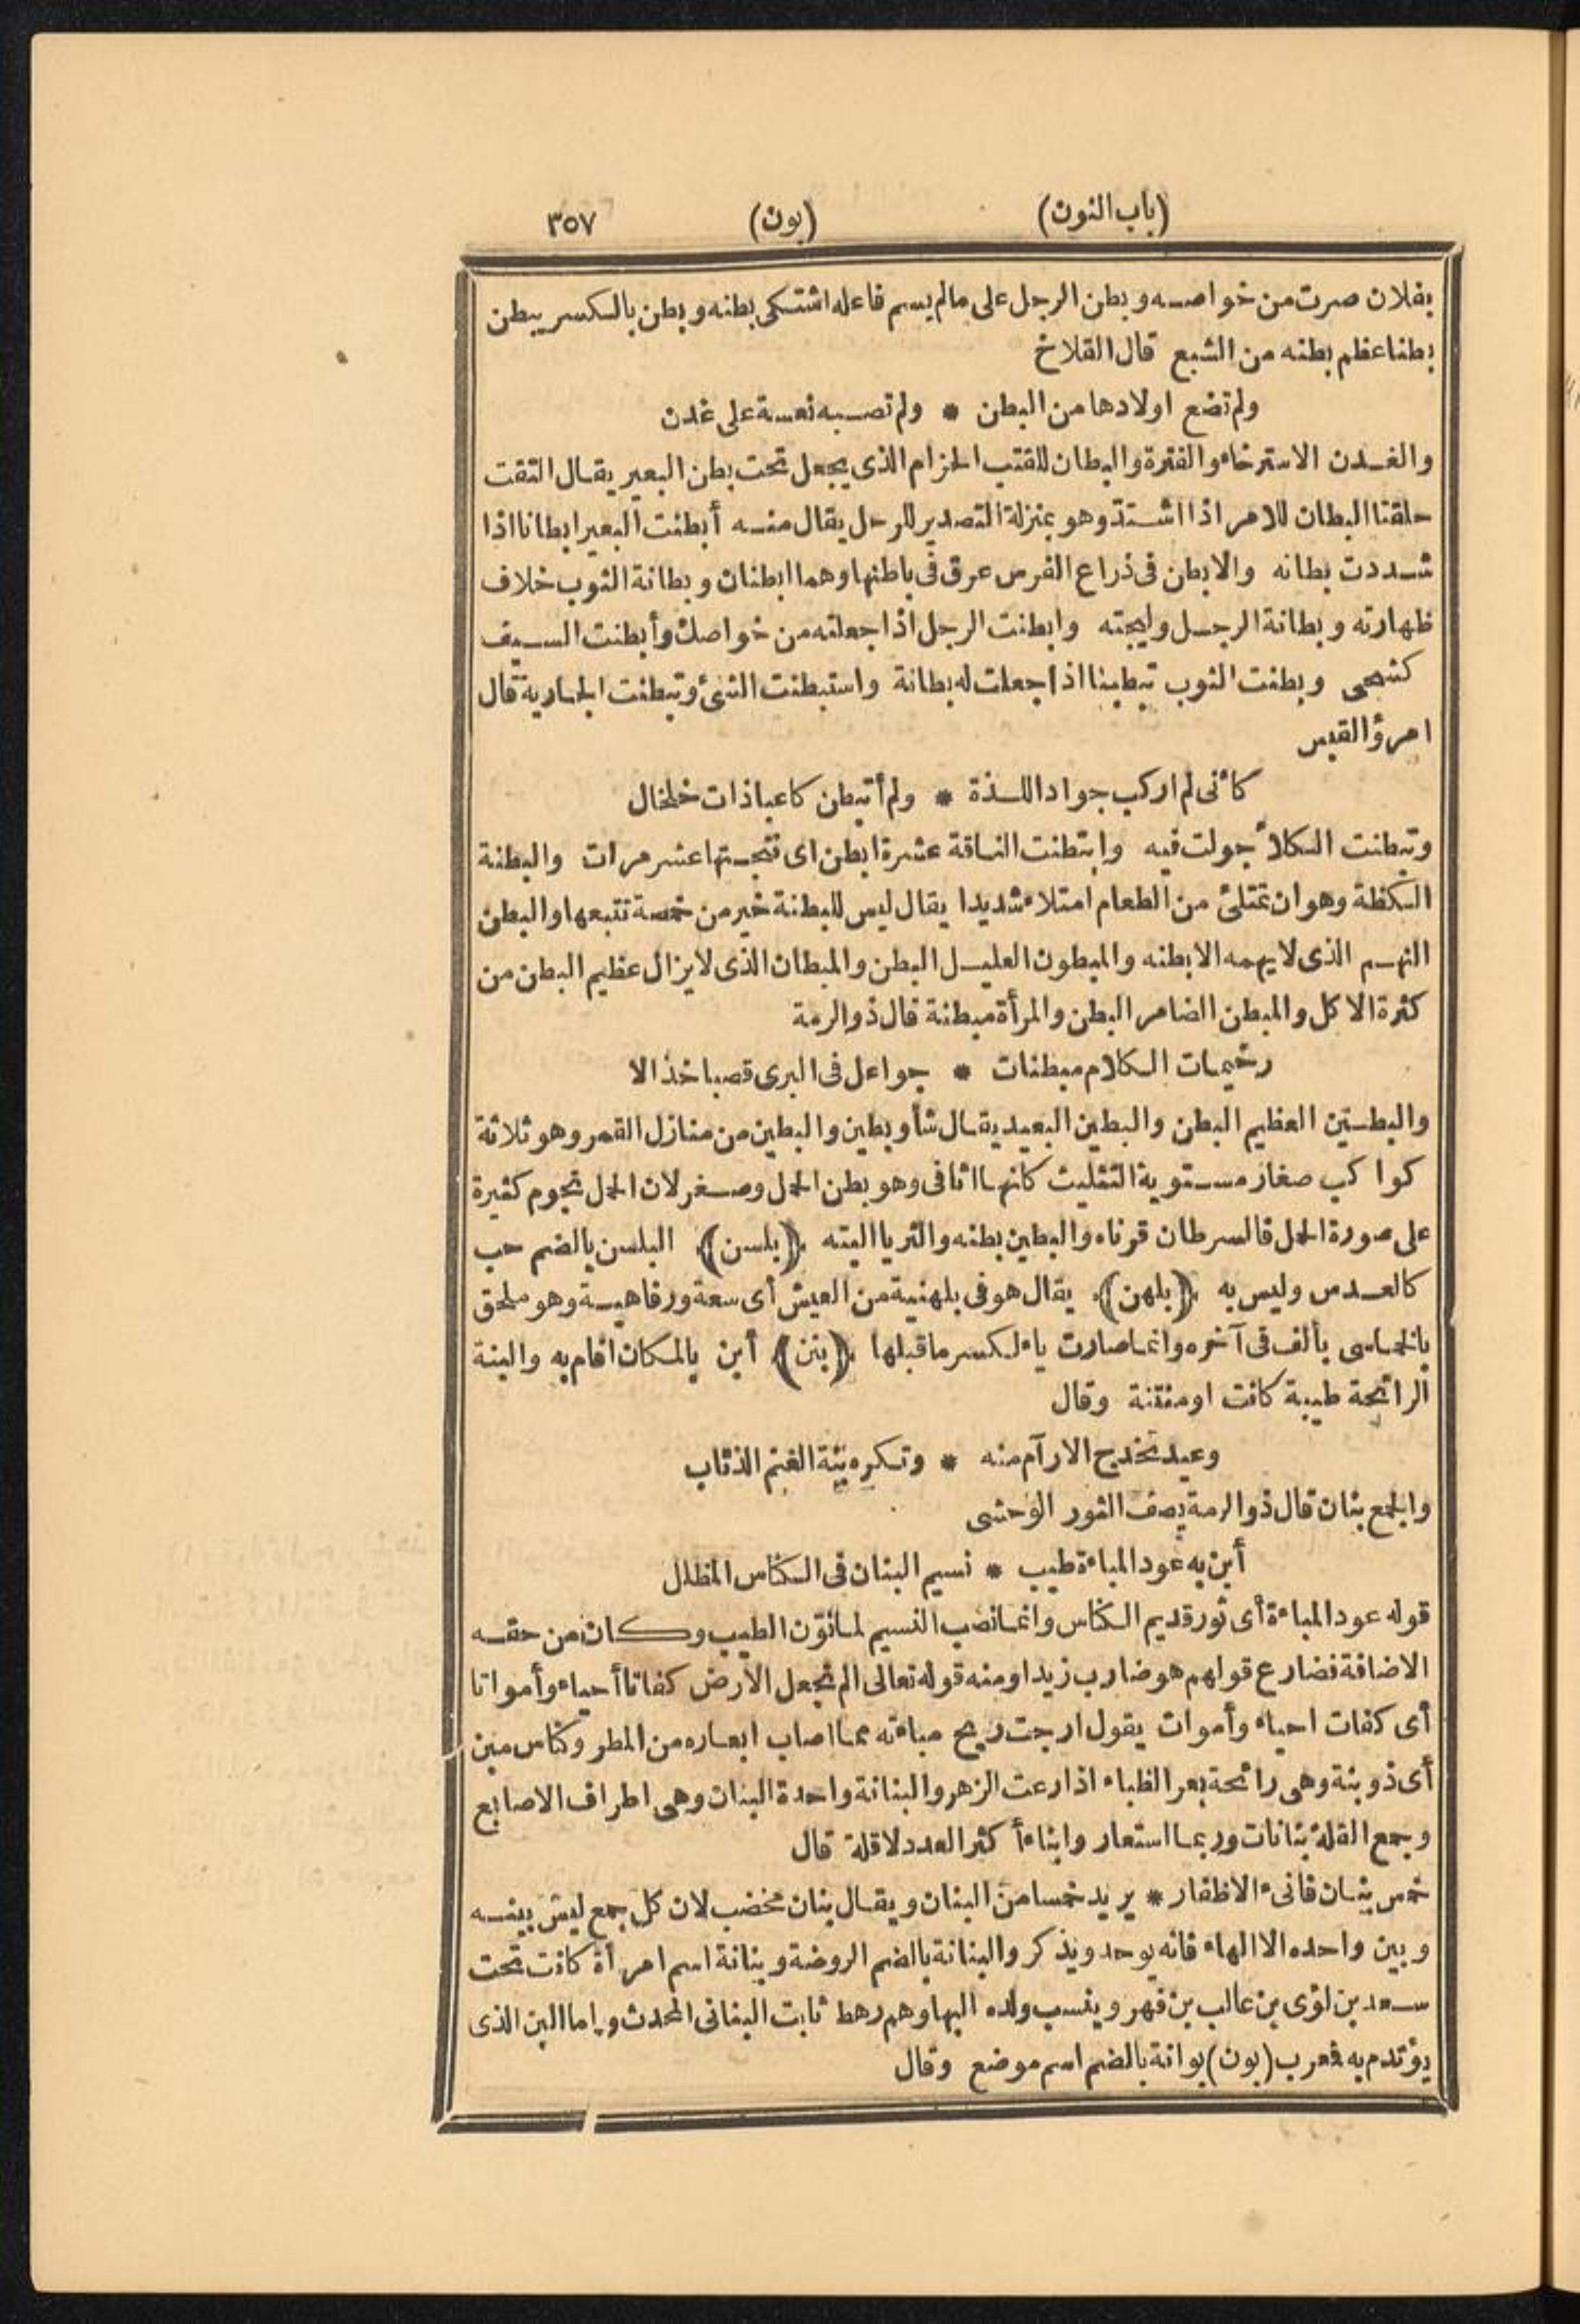 (باب النون) (بون) ٣٥٧
بفلان صرت من خواصه وبطن الرجل على مالم يسم فاعله اشتكى بطنه وبطن بالكسر يبطن
بطنا عظم بطنه من الشبع قال القلاخ
ولم تضع اولادها من البطن * ولم تصبه نعسة على غدن
والغدن الاسترخاء والفترة والبطان للقتب الحزام الذى يجعل تحت بطن البعير يقال التقت
حلقتا البطان للامر اذا اشتدّ وهو بمنزلة التصدير للرحل يقال منه أبطنت البعير ابطانا اذا
شددت بطانه والابطن فى ذراع الفرس عرق فى باطنها وهما ابطنان وبطانة الثوب خلاف
ظهارته وبطانة الرجل وليجته وابطنت الرجل اذا جعلته من خواصك وأبطنت السيف
كشحى وبطنت الثوب تبطينا اذا جعلت له بطانة واستبطنت الشئ وتبطنت الجارية قال
امرؤ القيس
كأنى لم اركب جوادا للذة * ولم أتبطن كاعبا ذات خلخال
وتبطنت الكلأ جولت فيه وابتطنت الناقة عشرة ابطن اى نتجتها عشر مرات والبطنة
الكظة وهو ان تمتلئ من الطعام امتلاء شديدا يقال ليس للبطنة خير من خمصة تتبعها والبطن
النهم الذى لايهمه الابطنه والمبطون العليل البطن والمبطان الذى لايزال عظيم البطن من
كثرة الاكل والمبطن الضامر البطن والمرأة مبطنة قال ذوالرمة
رخيمات الكلام مبطنات * جواعل فى البرى قصبا خذالا
والبطين العظيم البطن والبطين البعيد يقال شأو بطين والبطين من منازل القمر وهو ثلاثة
كواكب صغار مستوية التثليث كانها اثافى وهو بطن الحمل وصغر لان الحمل نجوم كثيرة
على صورة الحمل فالسرطان قرناه والبطين بطنه والثريا اليته ﴿بلسن﴾ البلسن بالضم حب
كالعدس وليس به ﴿بلهن﴾ يقال هو فى بلهنية من العيش أى سعة ورفاهية وهو ملحق
بالخماسى بألف فى آخره وانما صارت ياء لكسر ماقبلها ﴿بنن﴾ أبن بالمكان اقام به والبنة
الرائحة طيبة كانت اومنتنة وقال
وعيد تخدج الارآم منه * وتكره بنة الغنم الذئاب
والجمع بنان قال ذوالرمة يصف الثور الوحشى
أبن به عود المباءة طيب * نسيم البنان فى الكناس المظلل
قوله عود المباءة أى ثور قديم الكناس وانما نصب النسيم لما نوّن الطيب وكان من حقه
الاضافة فضارع قولهم هو ضارب زيدا ومنه قوله تعالى الم نجعل الارض كفاتا أحياء وأمواتا
أى كفات احياء وأموات يقول ارجت ريح مباءته مما اصاب ابعاره من المطر وكناس مبن
أى ذو بنة وهى رائحة بعر الظباء اذا رعت الزهر والبنانة واحدة البنان وهى اطراف الاصابع
وجمع القلة بنانات وربما استعار وابناء أكثر العدد لاقلة قال
خمس بنان قانىء الاظفار * يريد خمسا من البنان ويقال بنان مخضب لان كل جمع ليس بينه
وبين واحده الا الهاء فانه يوحد ويذكر والبنانة بالضم الروضة وبنانة اسم امرأة كانت تحت
سعد بن لؤى بن غالب بن فهر وينسب ولده اليها وهم رهط ثابت البنانى المحدث واما البن الذى
يؤتدم به فمعرب (بون) بوانة بالضم اسم موضع وقال